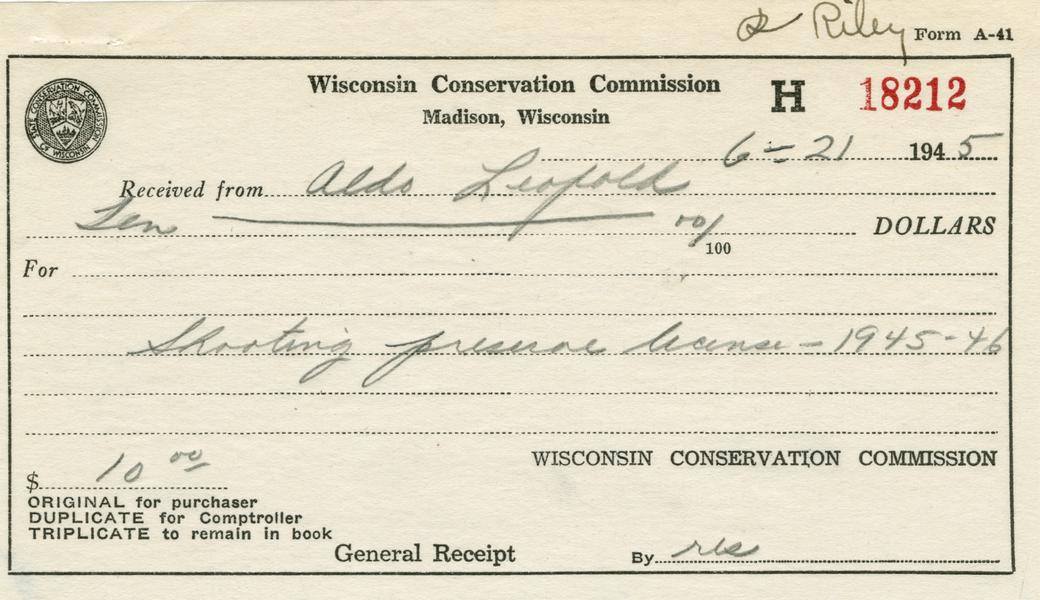 & Riley Form A-41
STATE CONSERVATION COMMISSION OF WISCONSIN
Wisconsin Conservation Commission H 18212
Madison, Wisconsin
6-21 1945
Received from Aldo Leopold
Ten 00/100 DOLLARS
For
Shooting preserve license - 1945-46
WISCONSIN CONSERVATION COMMISSION
$ 10 00
ORIGINAL for purchaser
DUPLICATE for Comptroller
TRIPLICATE to remain in book
General Receipt By res